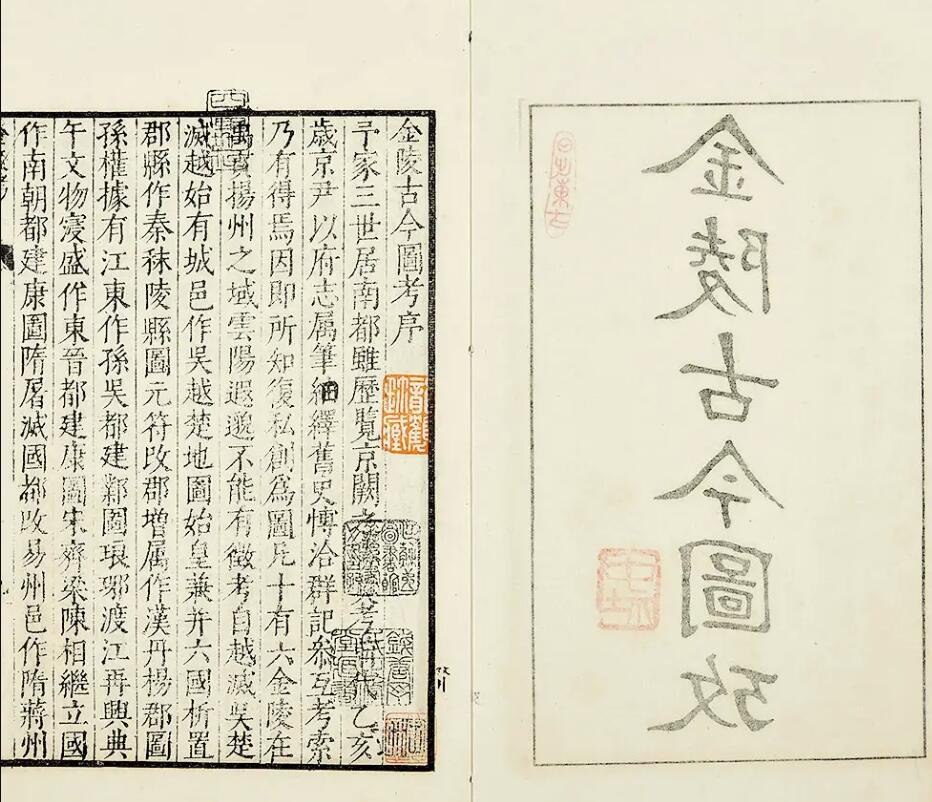 金陵古今圖攷
金陵古今圖考序
予家三世居南都雖歷覽京闕之考乙亥
歲京尹以府志属筆紬繹舊史博洽群記叅互考索
乃有得焉因即所知復私創為圖凡十有六金陵在
禹貢揚州之域雲陽遐邈不能有徵考自越滅吳楚
滅越始有城邑作吳越楚地圖始皇兼并六國析置
郡縣作秦秣陵縣圖元符改郡增属作漢丹楊郡圖
孫權據有江東作孫吳都建鄴圖琅琊渡江再興典
午文物寖盛作東晉都建康圖宋齊梁陳相繼立國
作南朝都建康圖隋屠滅國都改易州邑作隋蔣州